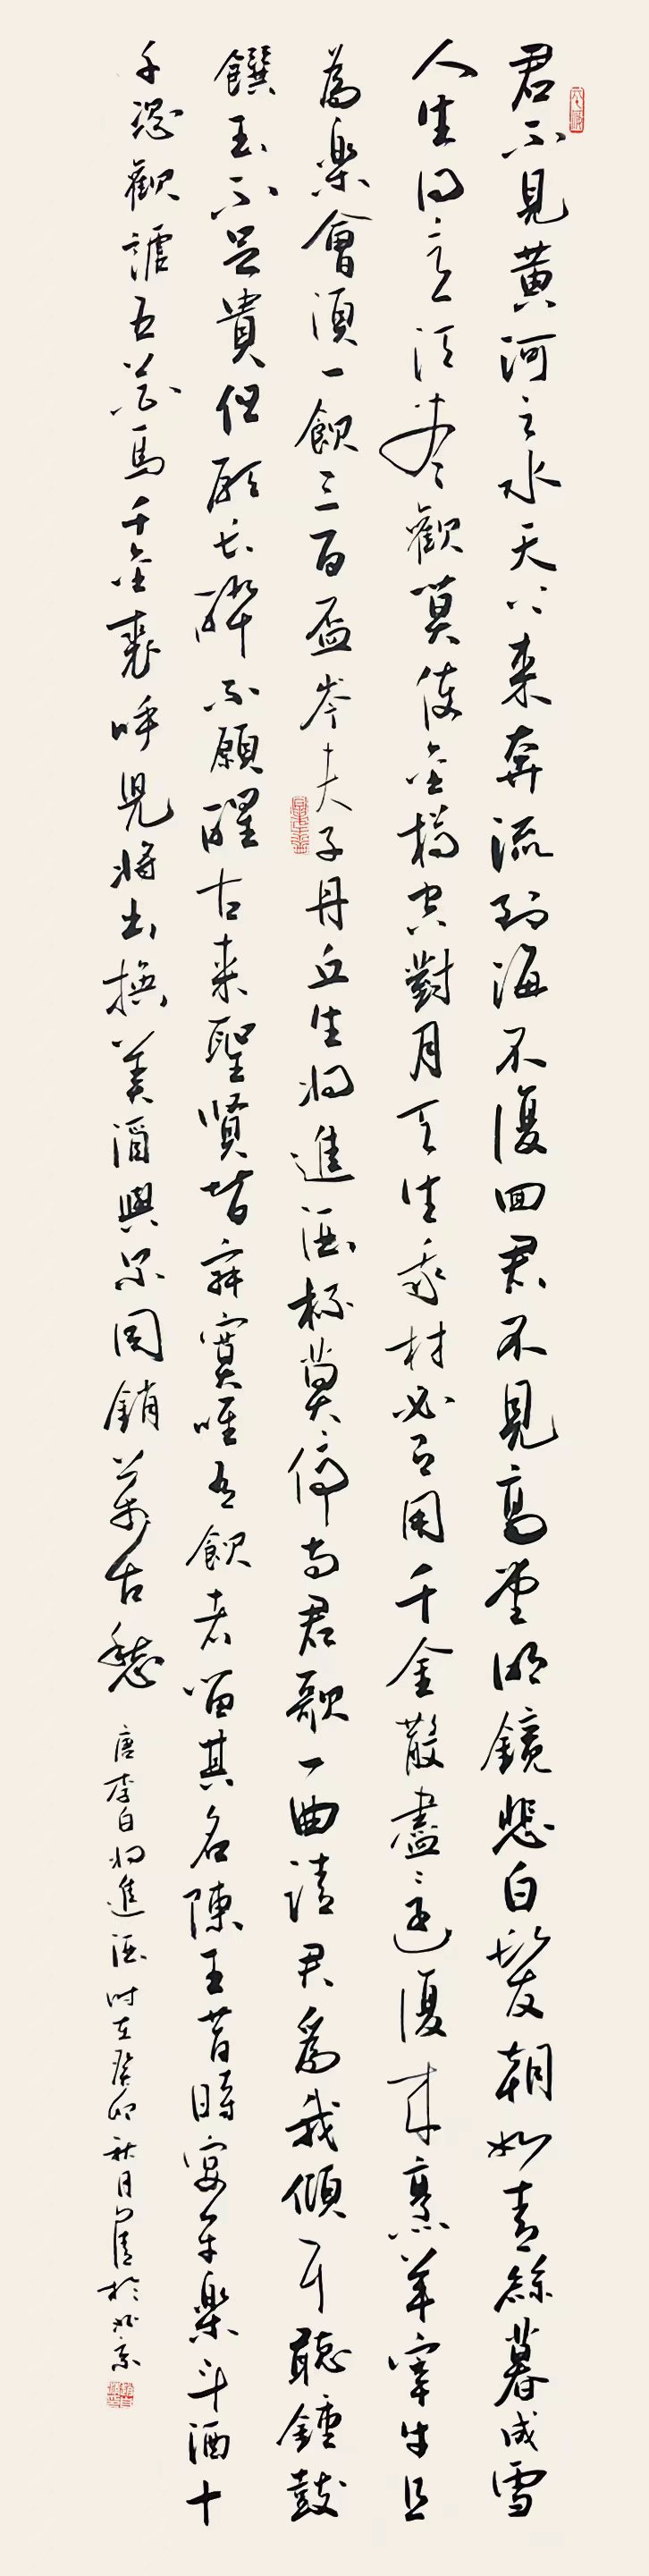 君不見黄河之水天上来奔流到海不復回君不見高堂明鏡悲白髮朝如青絲暮成雪
人生得意須盡歡莫使金樽空對月天生我材必有用千金散盡還復來烹羊宰牛且
為樂會須一飲三百盃岑夫子丹丘生将進酒杯莫停与君歌一曲請君為我傾耳聽鍾鼓
饌玉不足貴但願長醉不願醒古来聖賢皆寂寞唯有飲者留其名陳王昔時宴平樂斗酒十
千恣歡謔五花馬千金裘呼兒将出換美酒與尔同銷萬古愁 唐李白将進酒 时在癸卯秋月於北京